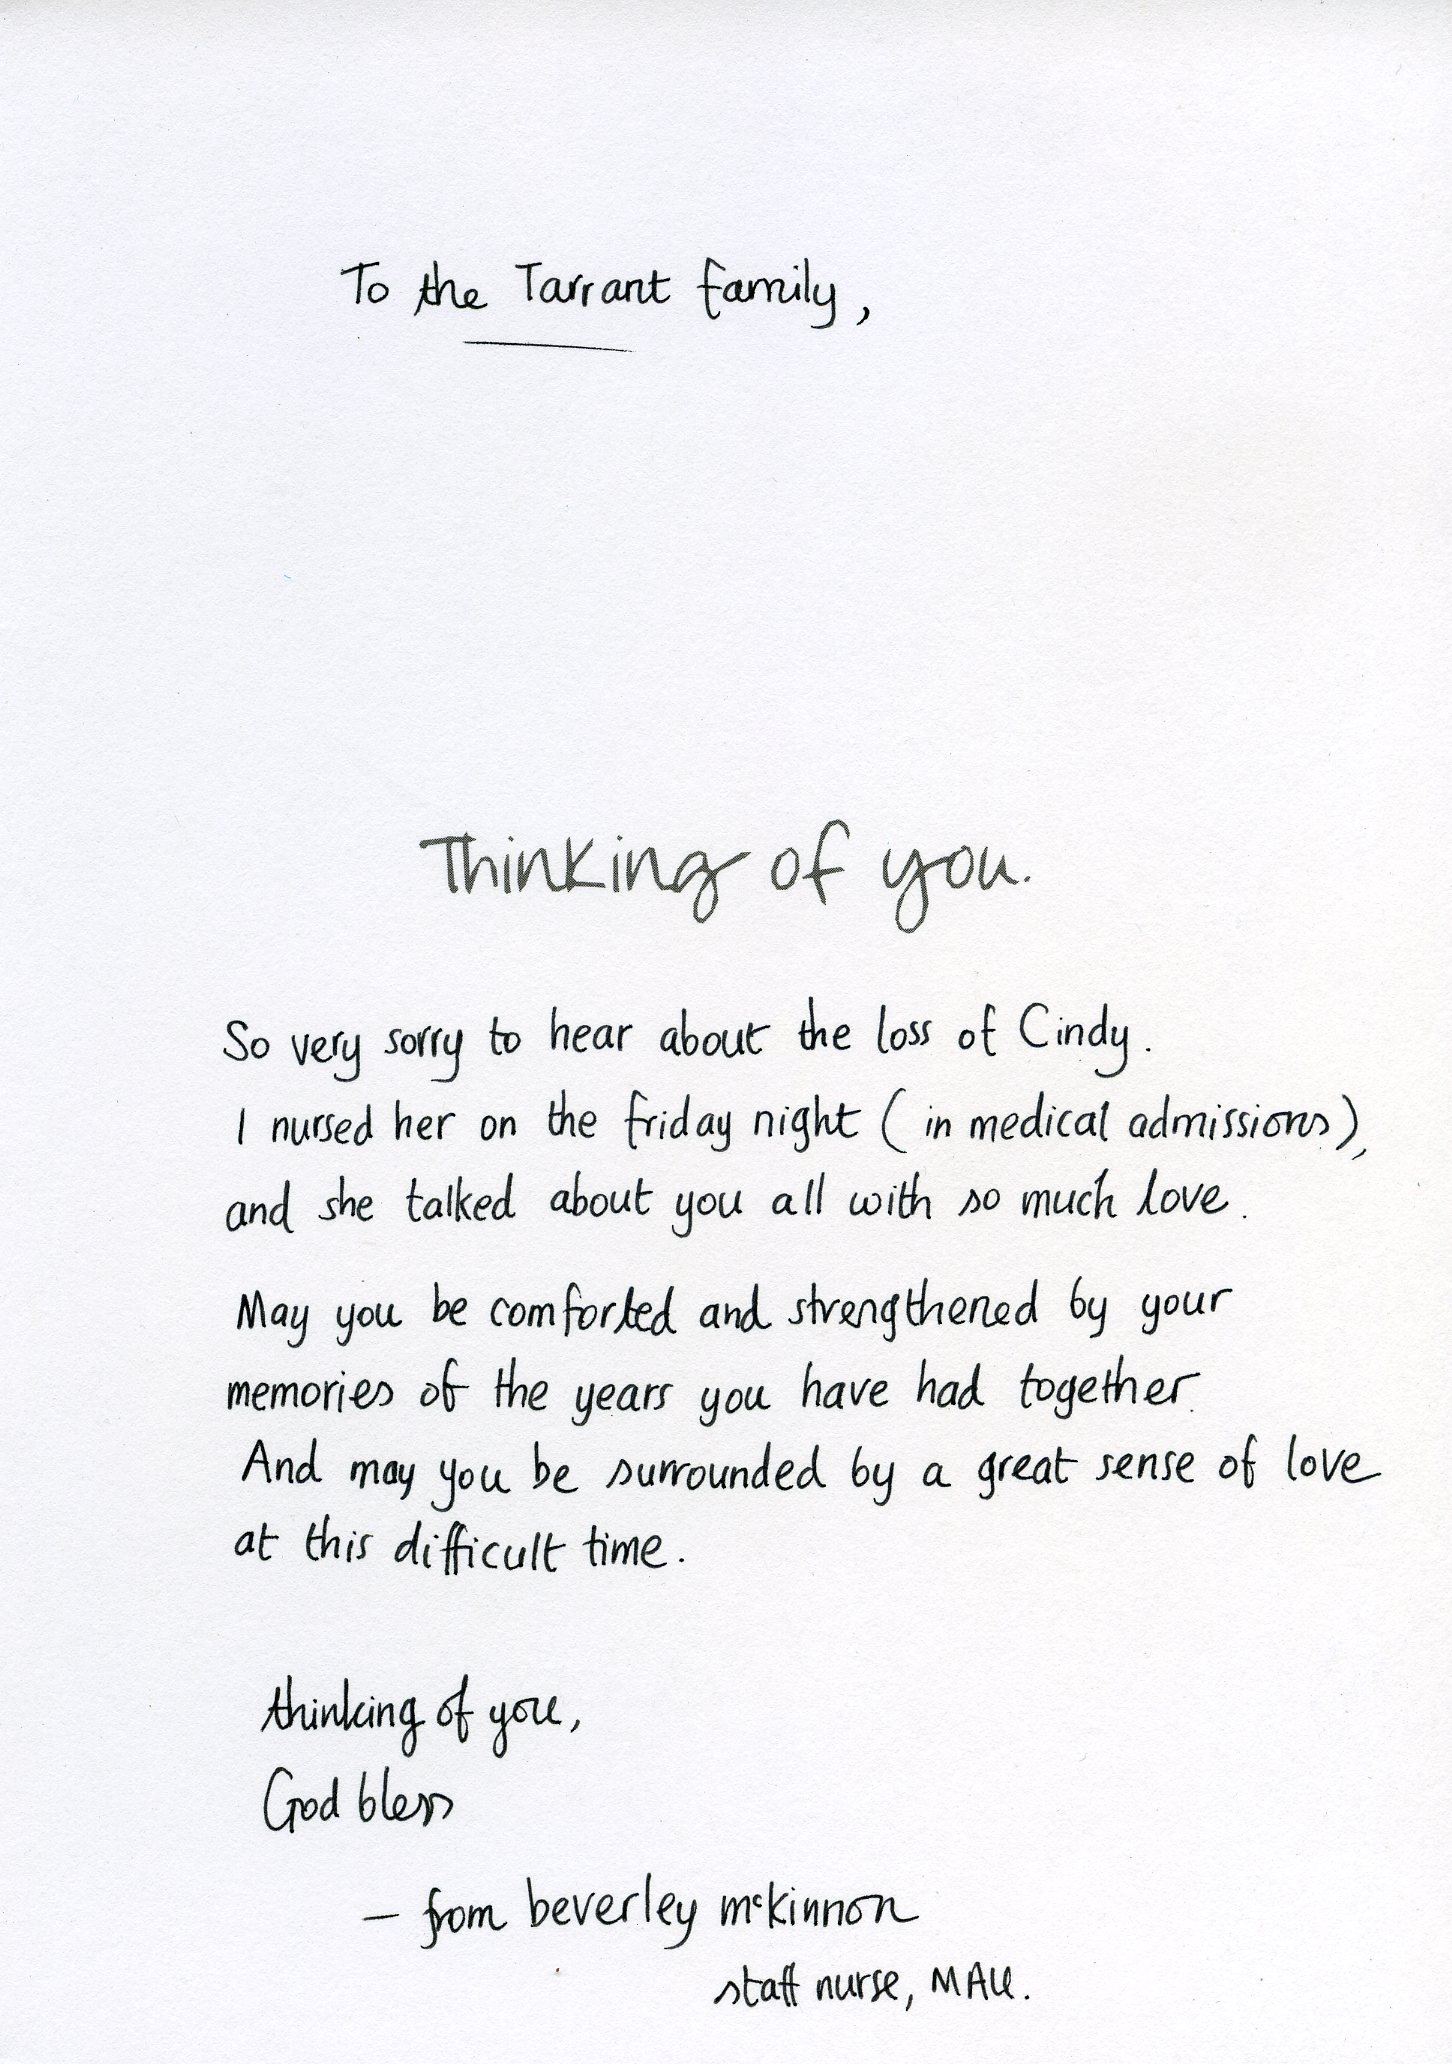 To the Tarrant family,
Thinking of you.
So very sorry to hear about the loss of Cindy.
I nursed her on the friday night (in medical admissions),
and she talked about you all with so much love.
May you be comforted and strengthened by your
memories of the years you have had together.
And may you be surrounded by a great sense of love
at this difficult time.
thinking of you,
God bless
– from beverley mckinnon
staff nurse, MAU.